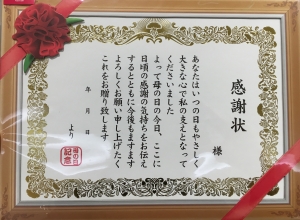 感謝状
様
あなたはいつの日もやさしく
大きな心で私の支えとなって
くださいました
よって母の日の今日、ここに
日頃の感謝の気持ちをお伝え
するとともに今後もますます
よろしくお願い申し上げたく
これをお贈り致します
年 月 日
より
母の日
記念